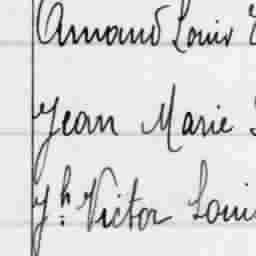 Armand Louis
Jean Marie
Jh Victor Louis